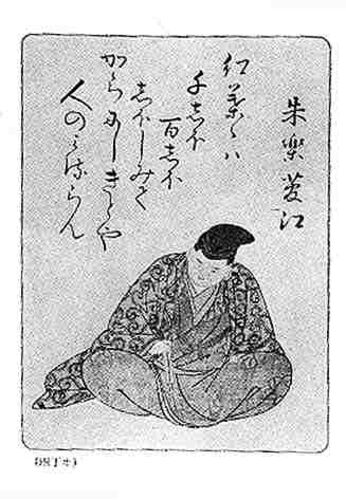 朱樂菅江
紅葉々ハ
千しほ
百しほ
しほしみて
からにしきとや
人のみるらん